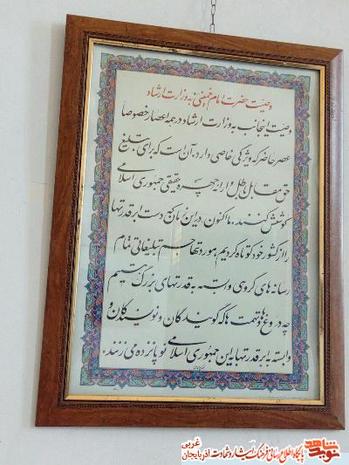 وصیت حضرت امام خمینی به وزارت ارشاد
وصیت اینجانب به وزارت ارشاد در همه اعصار خصوصاً
عصر حاضر که ویژگی خاصی دارد، آن است که برای تبلیغ
حق مقابل باطل و ارایه چهره حقیقی جمهوری اسلامی
کوشش کنند. ما اکنون در این زمان که دست ابرقدرتها
را از کشور خود کوتاه کردیم، مورد تهاجم تبلیغاتی تمام
رسانه های گروهی وابسته به قدرتهای بزرگ هستیم
چه دروغها و تهمت ها که گویندگان و نویسندگان
وابسته به ابرقدرتها به این جمهوری اسلامی نوپا نزده و نمی زنند.
نوید شاهد
پایگاه اطلاع رسانی فرهنگ ایثار و شهادت آذربایجان غربی